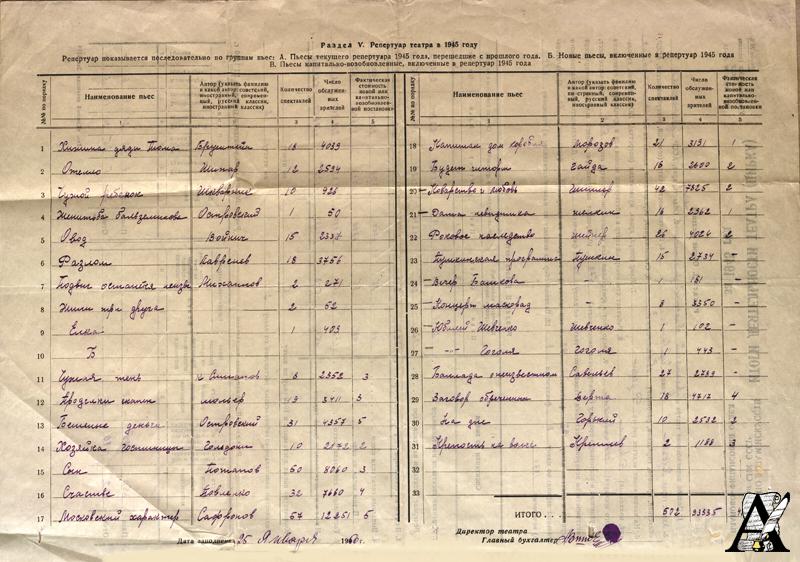 Раздел V. Репертуар театра в 1945 году
Репертуар показывается последовательно по группам пьес: А. Пьесы текущего репертуара 1945 года, перешедшие с прошлого года. Б. Новые пьесы, включенные в репертуар 1945 года
В. Пьесы капитально-возобновленные, включенные в репертуар 1945 года
№№ по порядку Наименование пьес Автор (указать фамилию и какой автор: советский, иностранный, современный, русский классик, иностранный классик) Количество спектаклей Число обслуженных зрителей Фактическая стоимость новой или капитально-возобновленной постановки
1 2 3 4 5
1 Хижина дяди Тома Бруштейн 18 4039
2 Отелло 12 2534
3 Чужой ребенок Шкваркин 10 926
4 Женитьба Бальзаминова Островский 1 50
5 Овод Войнич 15
6 Разлом Лавренев 18 3756
7 Подвиг останется Михайлов 2 271
8 Жили три друга 2 52
9 Елка 1 403
10 Б
11 Чужая тень К Симонов 8 2352 3
12 Проделки скапен мольер 13 3411 3
13 Бешеные деньги Островский 31 4357 5
14 Хозяйка гостиницы Гольдони 10 2172 2
15 Потапов 50 8060 3
16 Счастье Павленко 32 7660 4
17 Московский характер Софронов 57 12251 5
№№ по порядку Наименование пьес Автор (указать фамилию и какой автор: советский, иностранный, современный, русский классик, иностранный классик) Количество спектаклей Число обслуженных зрителей Фактическая стоимость новой или капитально-возобновленной постановки
1 2 3 4 5
18 Капитан Морозов 21 3131 1
19 Будет Гайда 16 2600 2
20 Коварство и любовь Шиллер 42 7825 2
21 Дама невидимка 16 2362 1
22 Роковое наследство Шейнер 26 4024 2
23 Пушкинская программа Пушкин 15 2734 –
24 Вечер Балкова – 1 181 –
25 Концерт – 8 3350 –
26 Юбилей Шевченко Шевченко 1 102 –
27 –"– Гоголя Гоголя 1 443 –
28 Баллада о неизвестном Савельев 27 2739 –
29 Заговор обреченных Вирта 18 4717 4
30 На дне Горький 10 2532 2
31 Крепость на волге Кремлев 2 1188 3
32
33
ИТОГО . . . 502 93535
Дата заполнения 25 Января
Директор театра
Главный бухгалтер